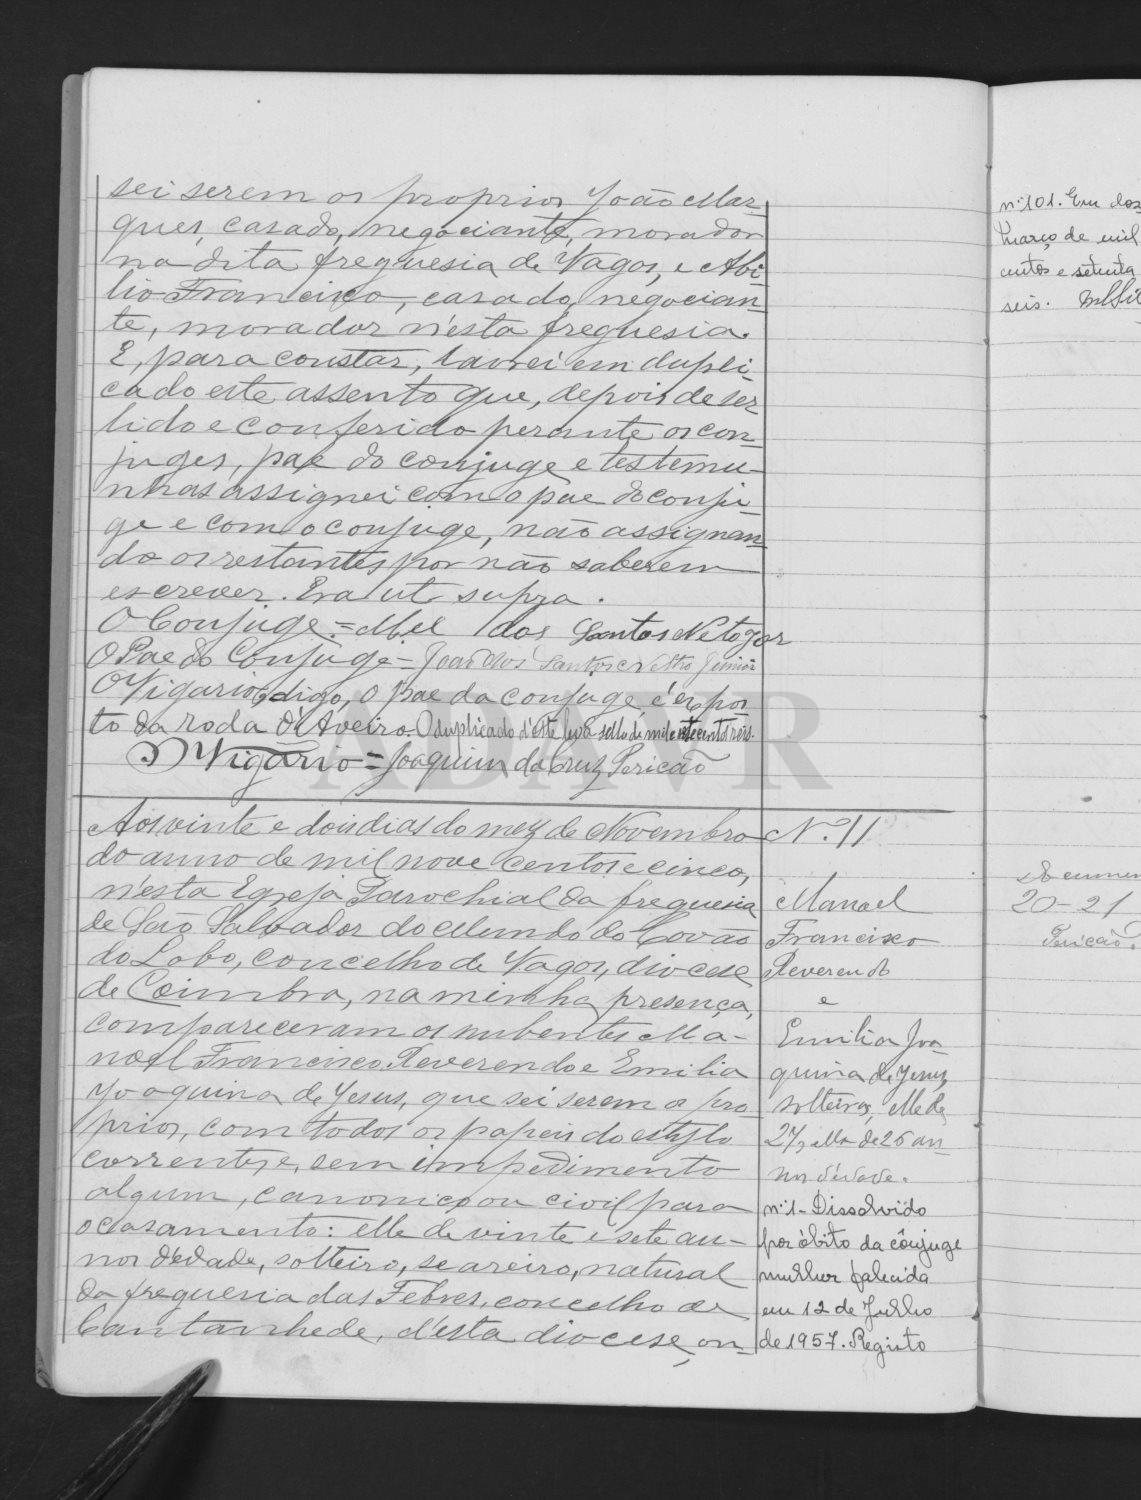 sei serem os proprios João Mar-
ques, casado, negociante, morador
na dita freguesia de Vagos, e Abi-
lio Francisco, casado, negocian-
te, morador n'esta freguesia.
E, para constar, lavrei em dupli-
cado este assento que, depois de ser
lido e conferido perante os con-
juges, pae do conjuge e testemu-
nhas assignei com o pae do conju-
ge e com o conjuge, não assignan-
do os restantes por não saberem
escrever. Era ut supra.
O Conjuge = Mel dos Santos Neto
O Pae do Conjuge = João dos Santos Neto Junior
O Vigario, digo, o pae da conjuge é expos-
to da roda d'Aveiro. O duplicado d'este leva sello de mil e centos reis.
O Vigario = Joaquim da Cruz Pericão
Aos vinte e dois dias do mez de Novembro
do anno de mil nove centos e cinco,
n'esta Egreja Parochial da freguesia
de São Salvador do Mundo do Covão
do Lobo, concelho de Vagos, diocese
de Coimbra, na minha presença,
compareceram os nubentes Ma-
noel Francisco Reverendo e Emilia
Joaquina de Jesus, que sei serem os pro
prios, com todos os papeis do estylo
correntes e, sem impedimento
algum, canonico ou civil para
o casamento: elle de vinte e sete an-
nos d'edade, solteiro, seareiro, natural
da freguesia das Febres, concelho de
Cantanhede, d'esta diocese, on-
N.º 11
Manoel
Francisco
Reverendo
e
Emilia Joa-
quina de Jesus,
solteiros, elle de
27, ella de 26 an-
nos d'edade.
nº 1 - Dissolvido
por óbito da cônjuge
mulher falecida
em 12 de Julho
de 1957. Registo
nº 101. Em
Março de mil
centos e setenta
seis.
20-21
Pericão.
ADAVR